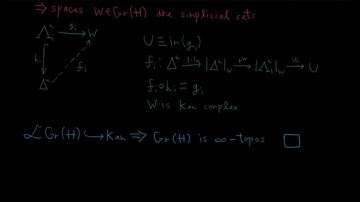 ⇒ spaces W∈Gr(H) are simplicial sets
Λᵢⁿ →^{gᵢ} W
hᵢ
fᵢ
Δⁿ
U ≡ in(gᵢ)
fᵢ: Δⁿ →^{|·|} |Δⁿ|_W →^{rW} |Λᵢⁿ|_W →^{uᵢ} U
fᵢ∘hᵢ ≡ gᵢ
W is Kan complex
ℒGr(H) ↪ Kan ⇒ Gr(H) is ∞-topos □